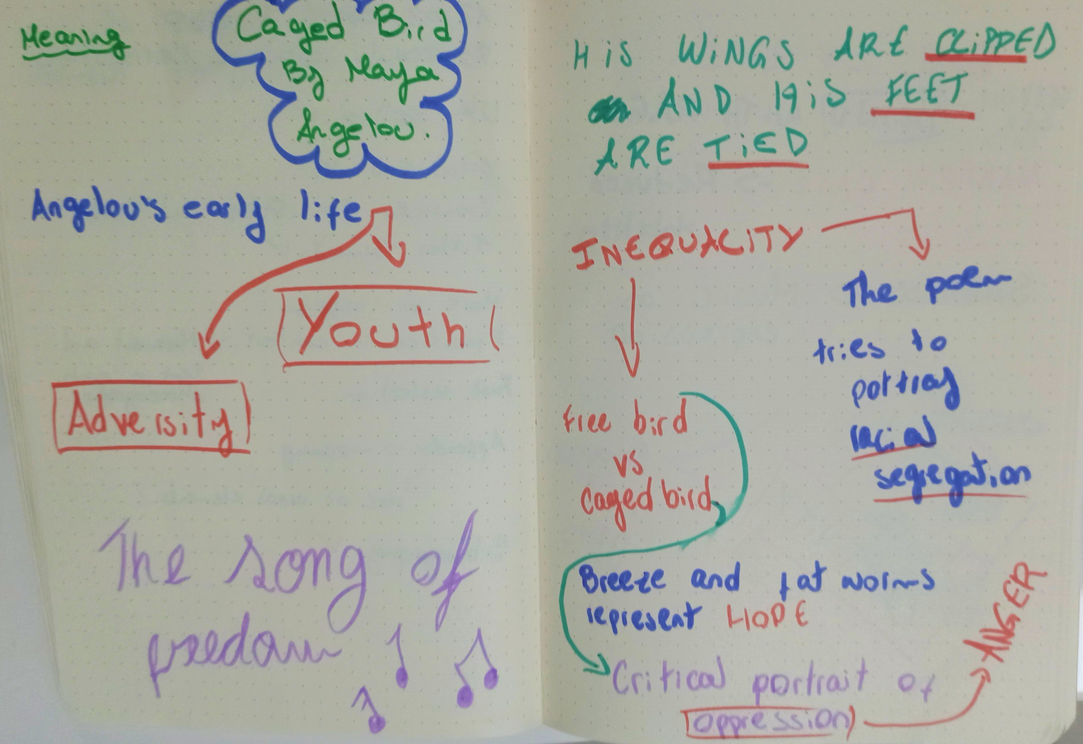 Meaning
Caged Bird
By Maya
Angelou.
Angelou's early life
Youth
Adversity
The song of
freedom
HiS WiNGS ARE CLiPPED
AND HiS FEET
ARE TiED
INEQUALITY
The poem
tries to
portray
racial
segregation
free bird
vs
caged bird
Breeze and fat worms
represent HOPE
Critical portrait of
oppression
ANGER